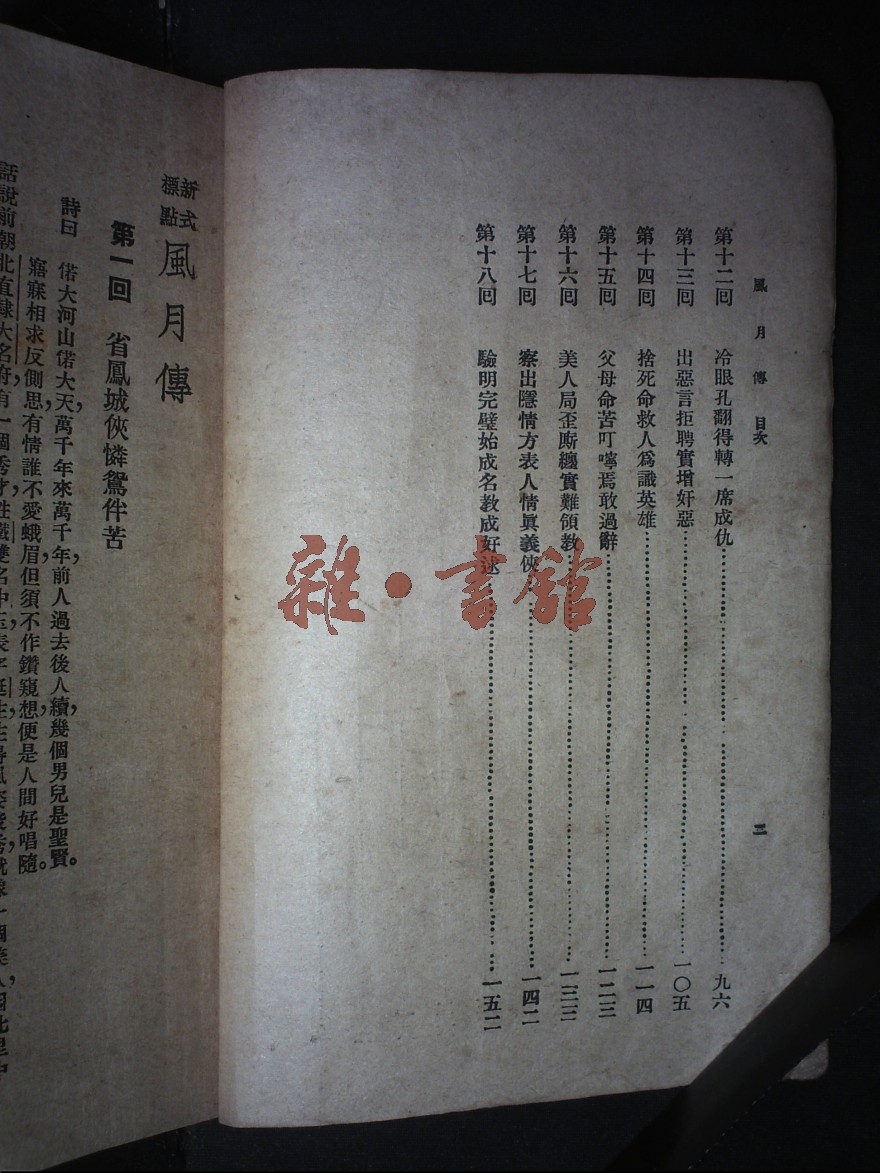 風月傳 目次
二
第十二回 冷眼孔翻得轉一席成仇 九六
第十三回 出惡言拒聘實增奸惡 一〇五
第十四回 捨死命救人爲識英雄 一一四
第十五回 父母命苦叮嚀焉敢過辭 一二三
第十六回 美人局歪廝纏實難領教 一三三
第十七回 察出隱情方表人情眞義俠 一四二
第十八回 驗明完璧始成名教成好逑 一五二
雜·書館
新式標點 風月傳
第一回 省鳳城俠憐鴛侶苦
詩曰 偌大河山偌大天，萬千年來萬千年，前人過去後人續，幾個男兒是聖賢。
寤寐相求反側思，有情誰不愛蛾眉，但須不作鑽窺想，便是人間好唱隨。
話說前朝北直隸大名府，有一個秀才，姓鐵雙名中玉，表字挺生，生得風姿俊秀，就像一個美人，因此里中